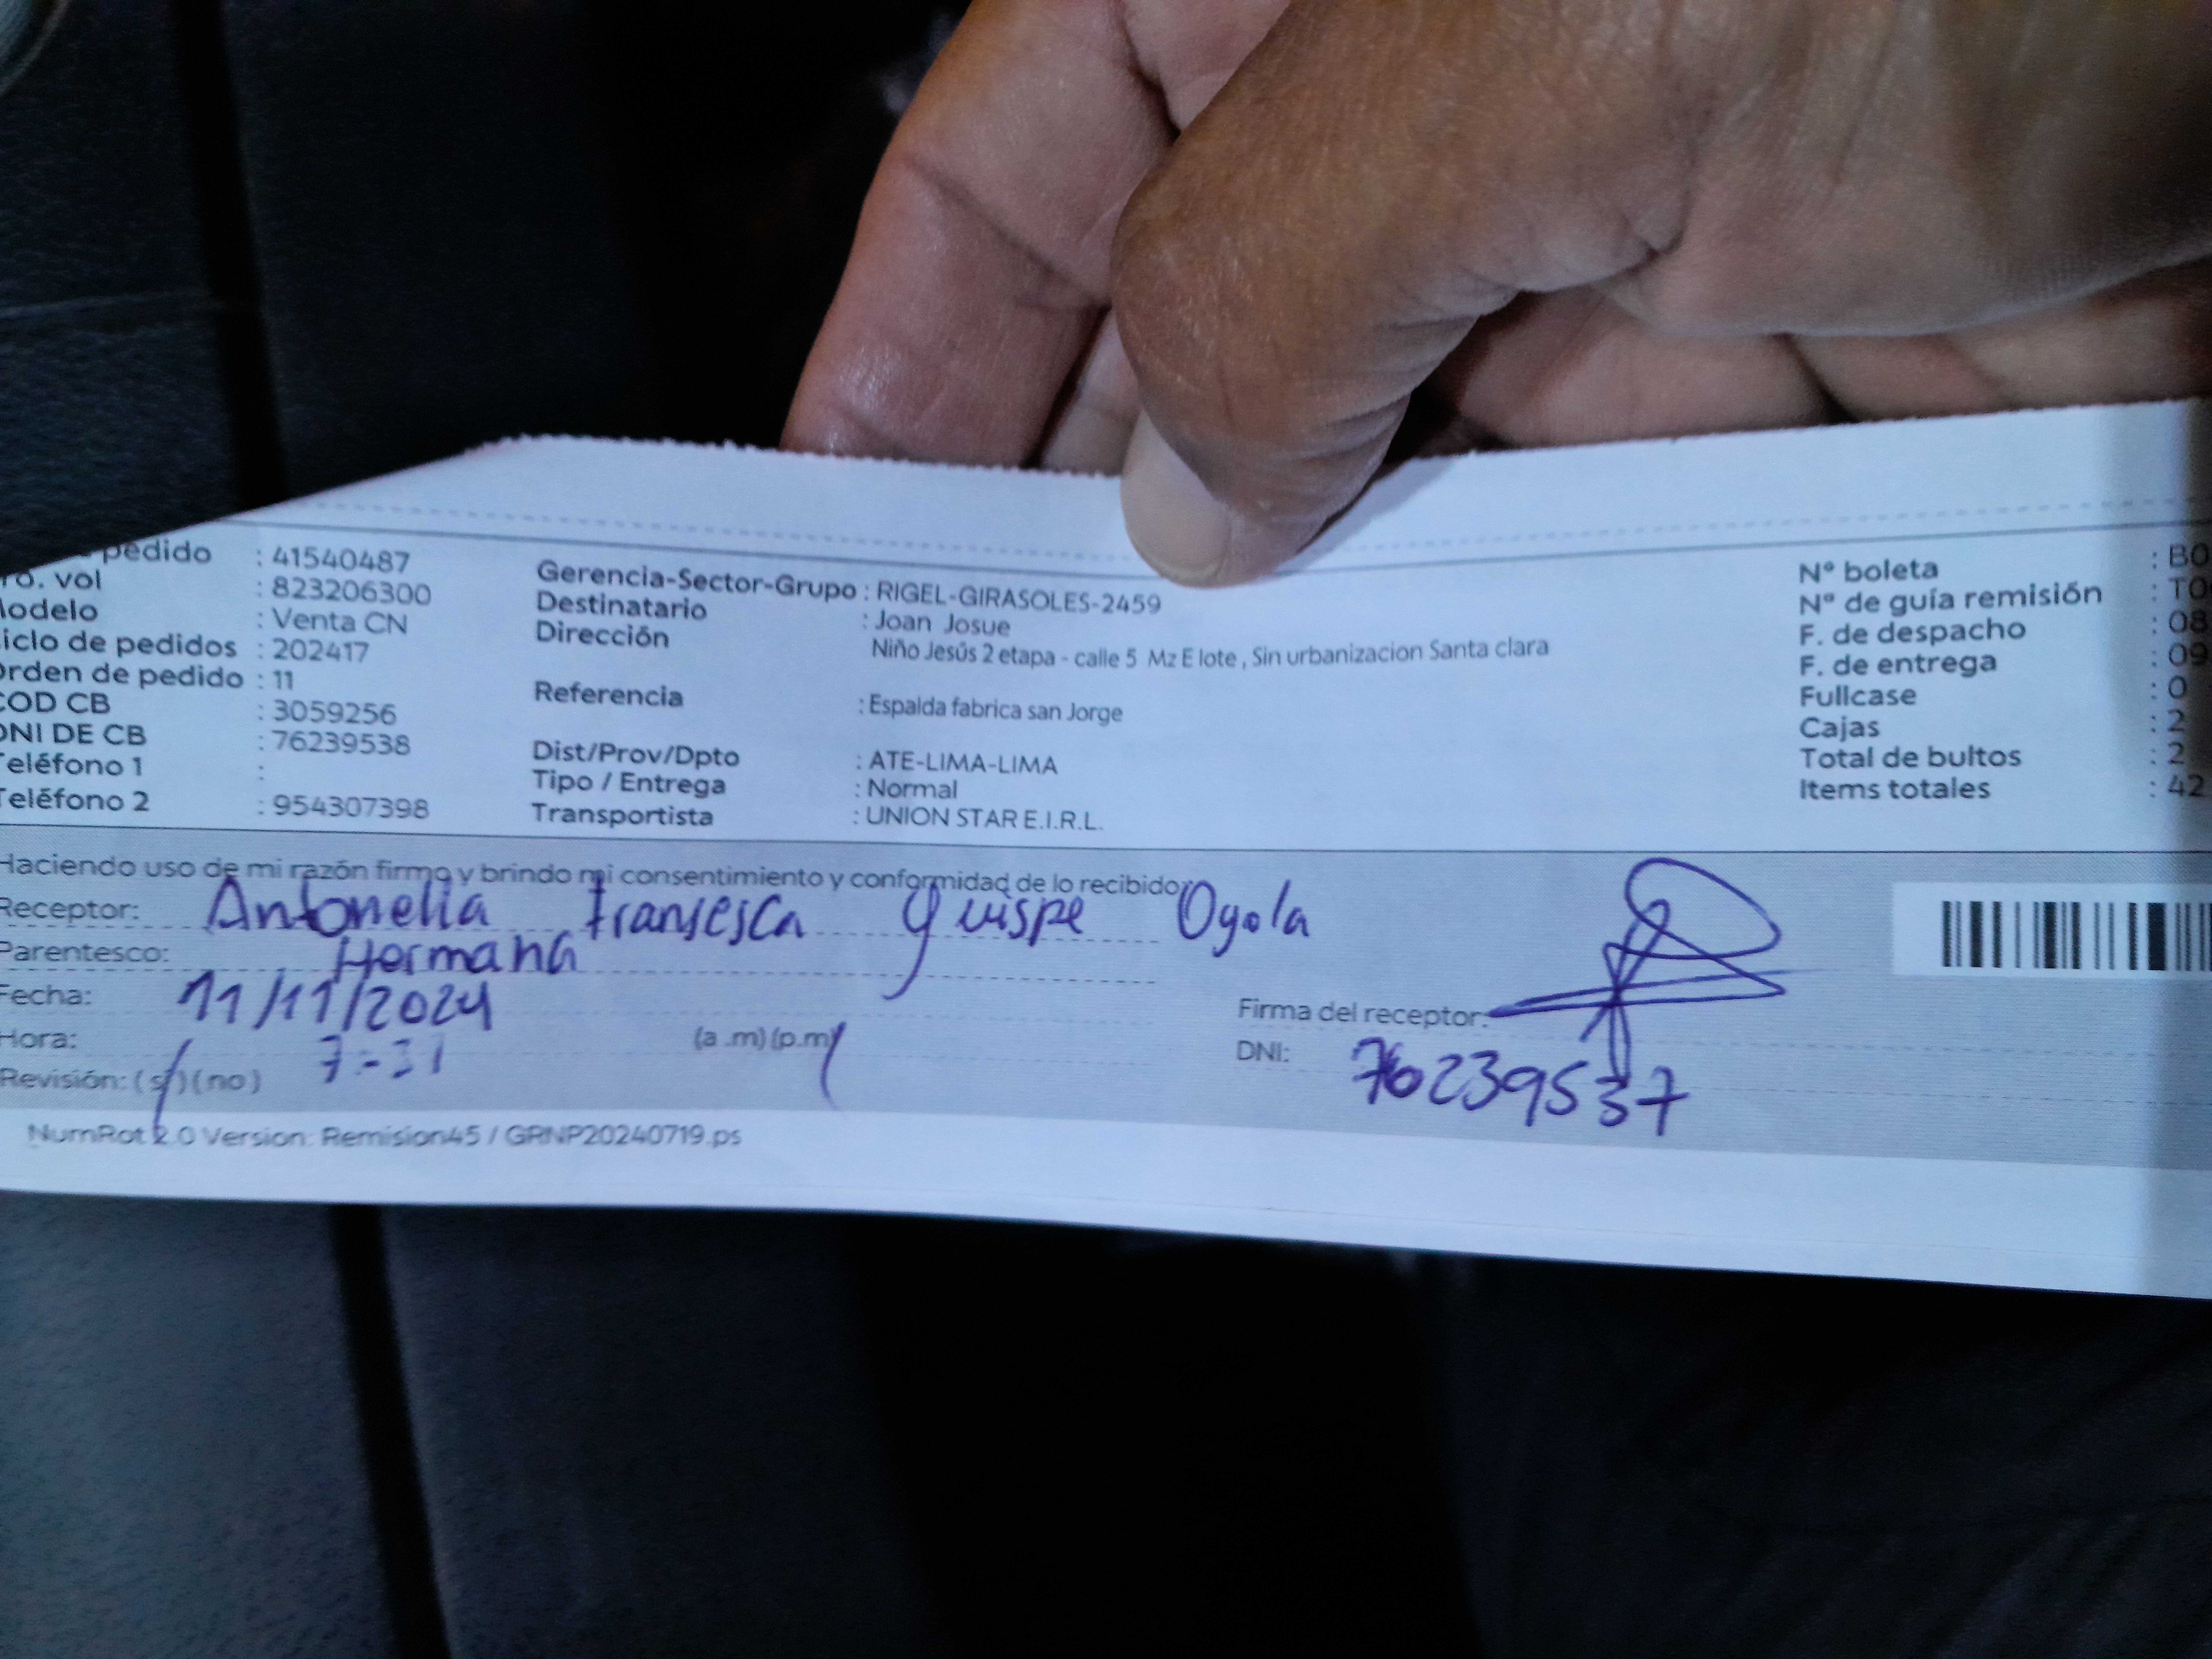 pedido : 41540487
ro. vol : 823206300
odelo : Venta CN
iclo de pedidos : 202417
rden de pedido : 11
COD CB : 3059256
DNI DE CB : 76239538
Teléfono 1 :
Teléfono 2 : 954307398
Gerencia-Sector-Grupo : RIGEL-GIRASOLES-2459
Destinatario : Joan Josue
Dirección Niño Jesús 2 etapa - calle 5 Mz E lote , Sin urbanizacion Santa clara
Referencia : Espalda fabrica san Jorge
Dist/Prov/Dpto : ATE-LIMA-LIMA
Tipo / Entrega : Normal
Transportista : UNION STAR E.I.R.L.
N° boleta : B0
N° de guía remisión : T0
F. de despacho : 08
F. de entrega : 09
Fullcase : 0
Cajas : 2
Total de bultos : 2
Items totales : 42
Haciendo uso de mi razón firmo y brindo mi consentimiento y conformidad de lo recibido:
Receptor: Antonella Fransesca Quispe Oyola
Parentesco: Hermana
Fecha: 11/11/2024
Hora: 7:31 (a .m) (p.m)
Revisión: (si) (no)
Firma del receptor:
DNI: 76239537
NumRot 2.0 Version: Remision45 / GRNP20240719.ps